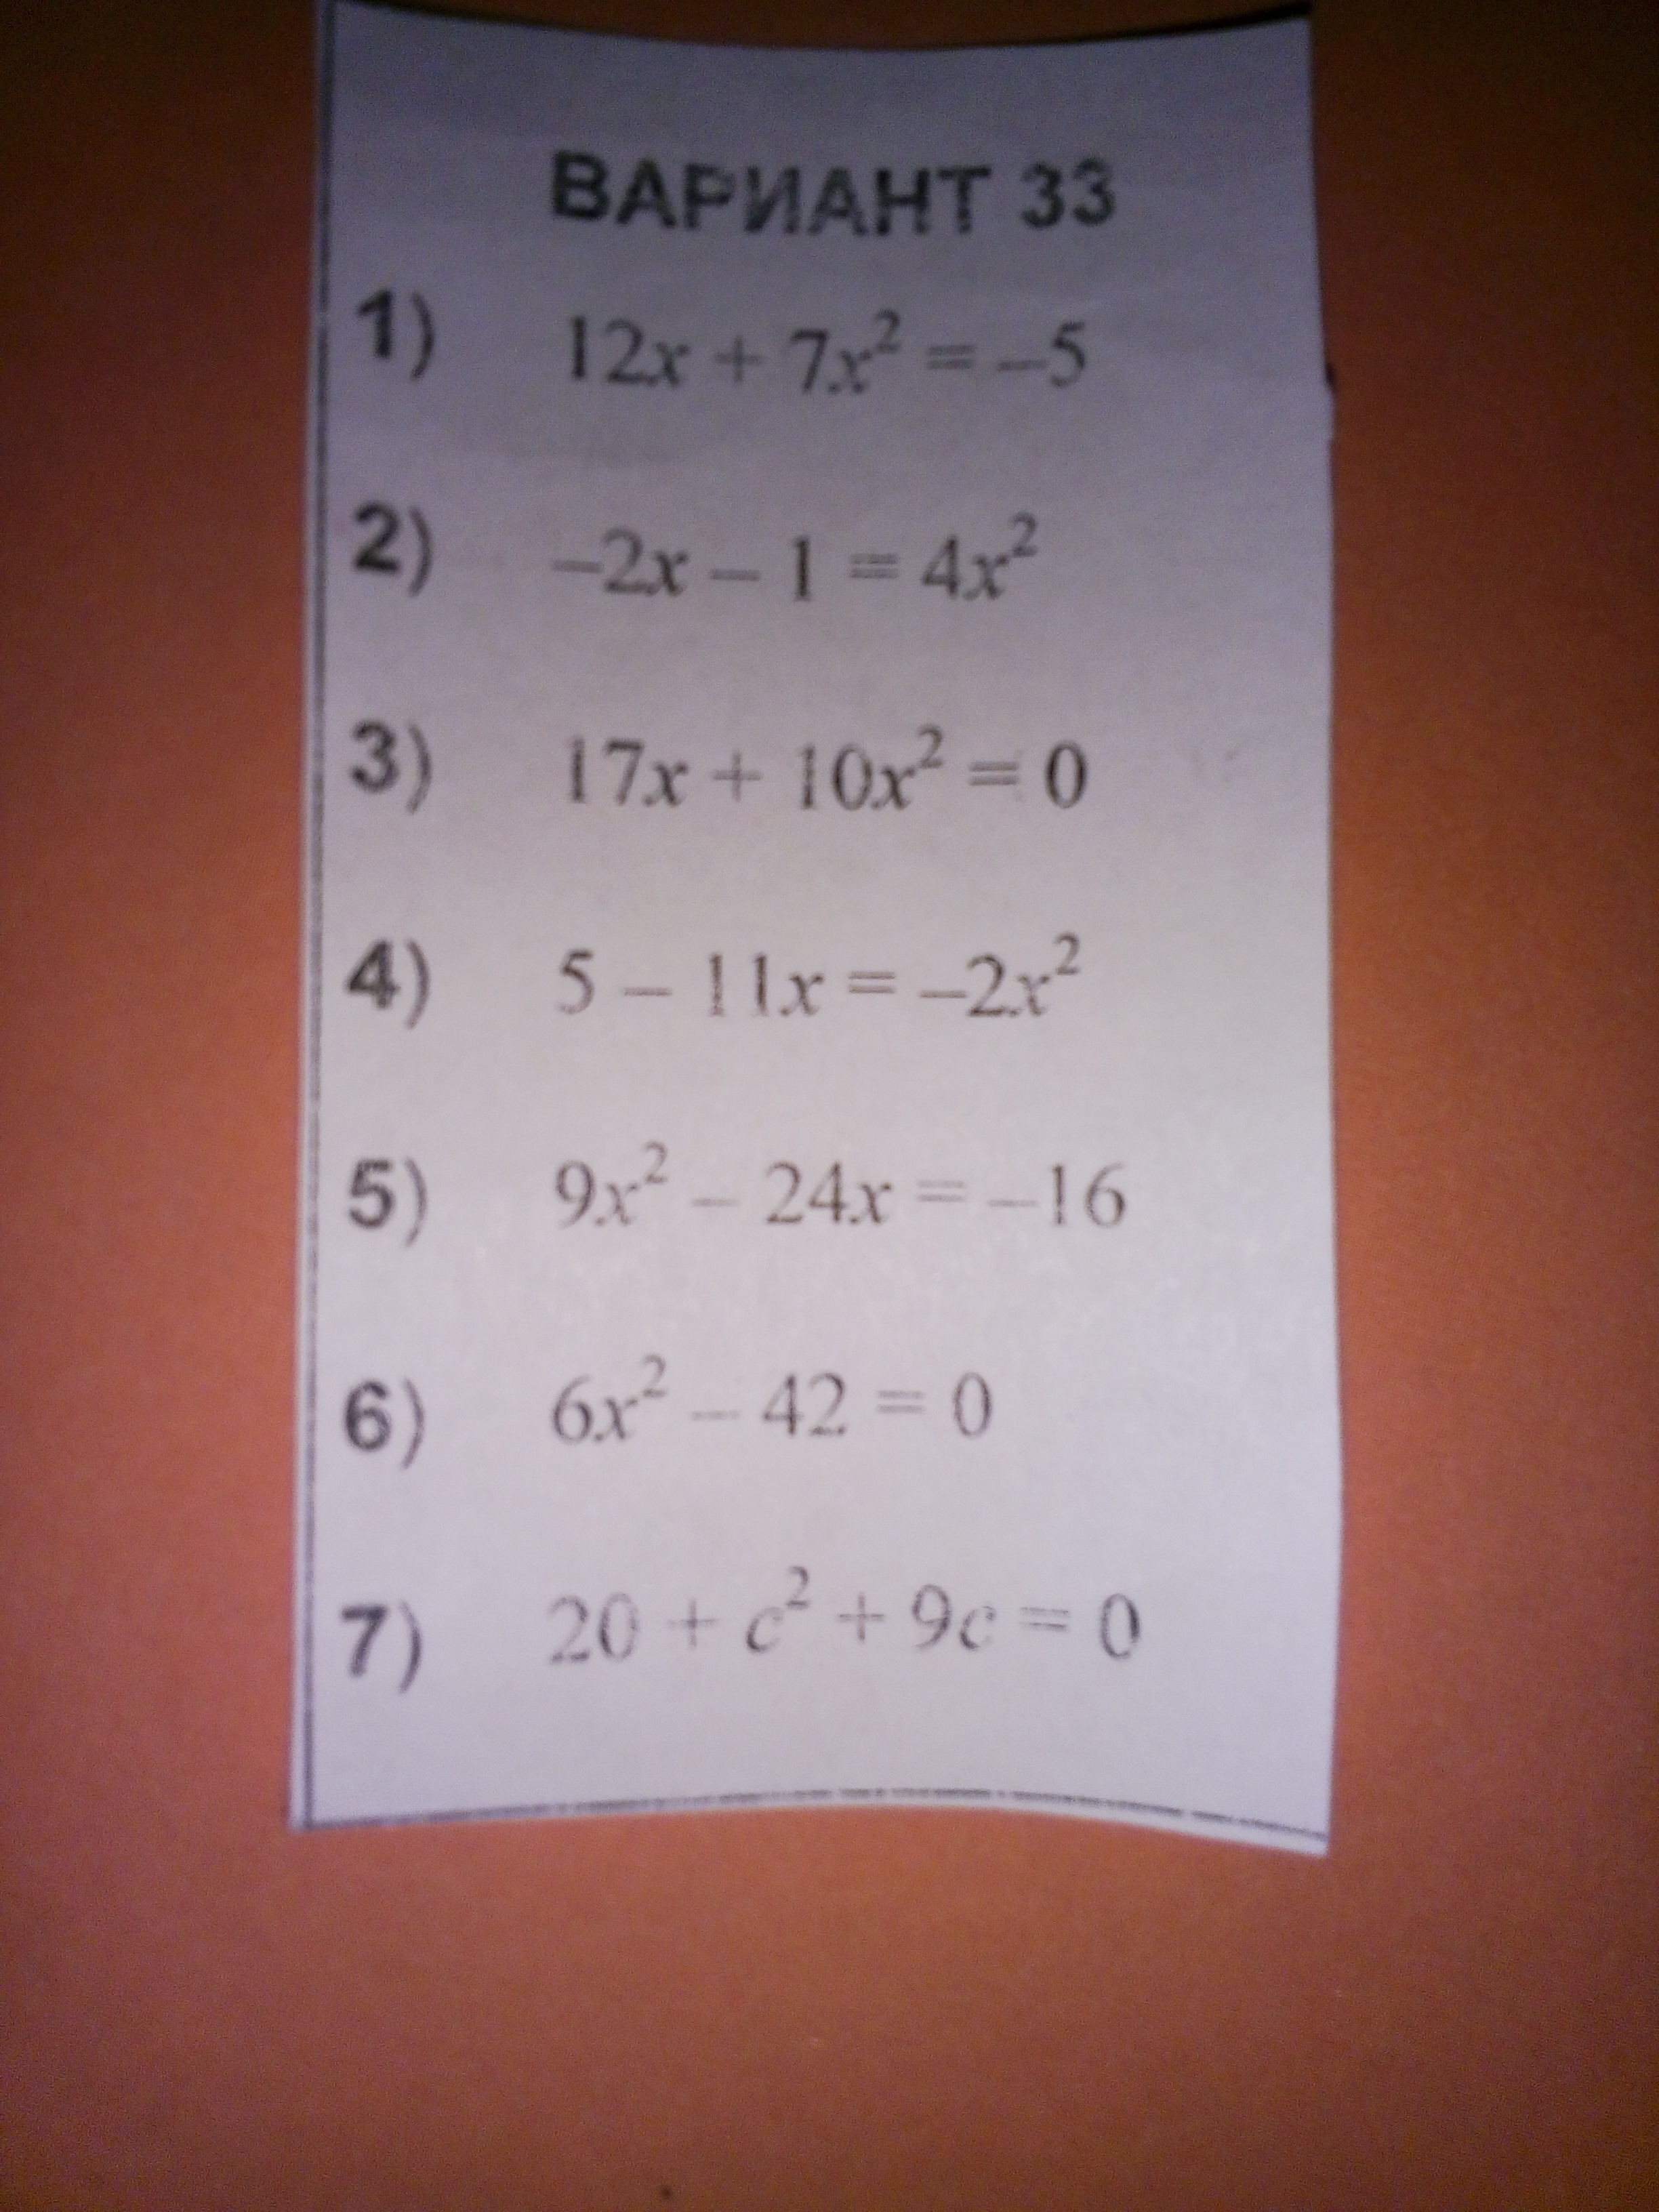 ВАРИАНТ 33
1) 12x + 7x² = –5
2) –2x – 1 = 4x²
3) 17x + 10x² = 0
4) 5 – 11x = –2x²
5) 9x² – 24x = –16
6) 6x² – 42 = 0
7) 20 + c² + 9c = 0